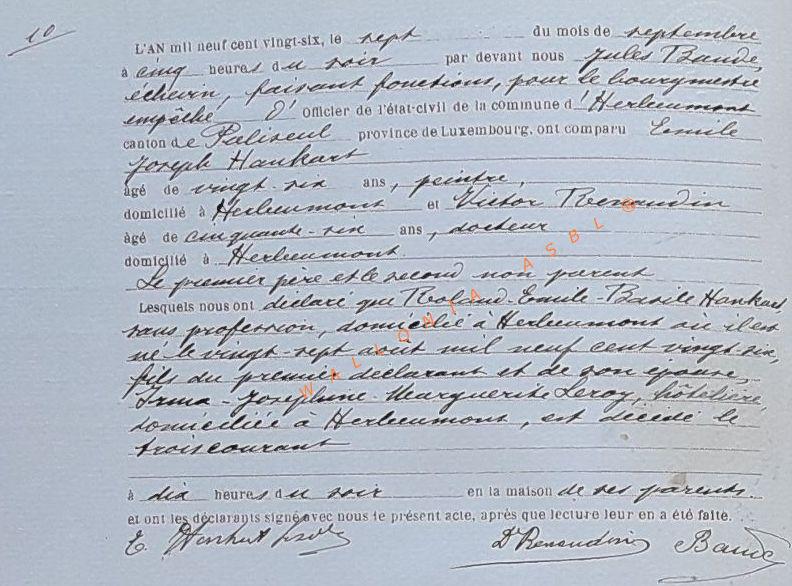 10
L'AN mil neuf cent vingt-six, le sept du mois de septembre
à cinq heures du soir par devant nous Jules Baude
échevin, faisant fonctions, pour le bourgmestre
empêché D' Officier de l'état-civil de la commune d'Herbeumont
canton de Paliseul province de Luxembourg, ont comparu Emile
Joseph Hankart
âgé de vingt-six ans, peintre,
domicilié à Herbeumont et Victor Renaudin
âgé de cinquante-six ans, docteur
domicilié à Herbeumont.
Le premier père et le second non parent
Lesquels nous ont déclaré que Roland-Emile-Basile Hankart,
sans profession, domicilié à Herbeumont où il est
né le vingt-sept août mil neuf cent vingt-six,
fils du premier déclarant et de son épouse,
Irma-Joséphine-Marguerite Leroy, hôtelière,
domiciliée à Herbeumont, est décédé le
trois courant
à dix heures du soir en la maison de ses parents.
et ont les déclarants signé avec nous le présent acte, après que lecture leur en a été faite.
E. Hankart Dr Renaudin Baude
WALLONIA ASBL ®